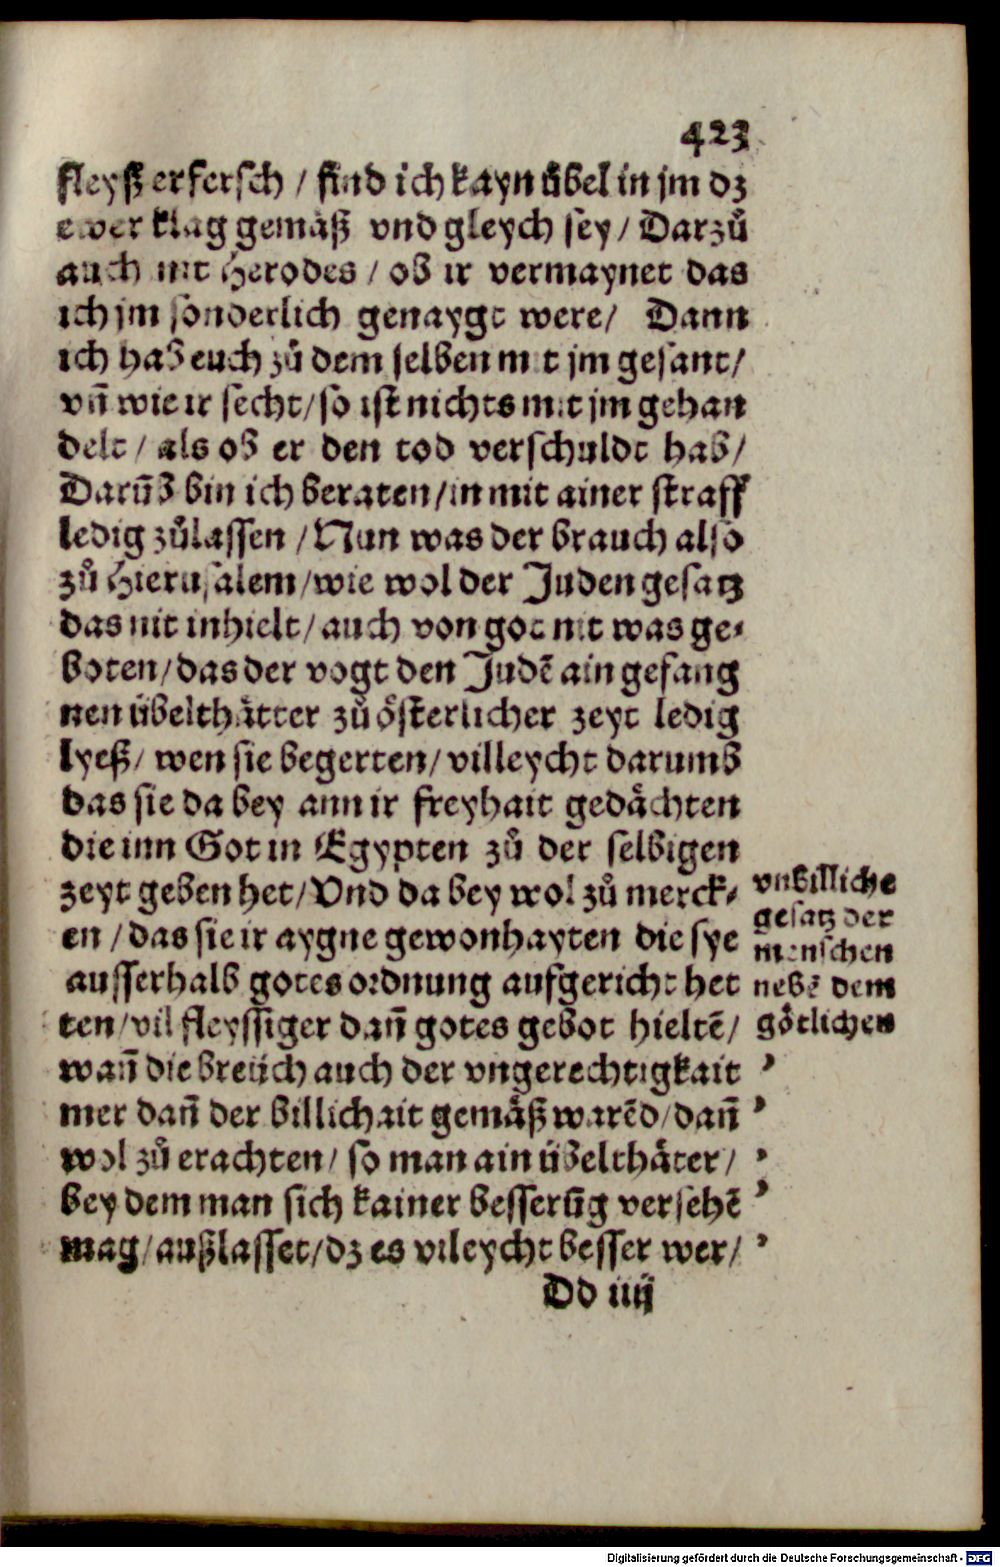 423
fleyß erfersch / find ich kayn übel in jm dz
ewer klag gemäß vnd gleych sey / Darzů
auch nit Herodes / ob ir vermaynet das
ich jm sonderlich genaygt were / Dann
ich hab euch zů dem selben mit jm gesant /
vñ wie ir secht / so ist nichts mit jm gehan
delt / als ob er den tod verschuldt hab /
Darũb bin ich beraten / in mit ainer straff
ledig zůlassen / Nun was der brauch also
zů Hierusalem / wie wol der Juden gesatz
das nit inhielt / auch von got nit was ge-
boten / das der vogt den Judẽ ain gefang
nen übelthätter zů österlicher zeyt ledig
lyeß / wen sie begerten / villeycht darumb
das sie da bey ann ir freyhait gedächten
die inn Got in Egypten zů der selbigen
zeyt geben het / Vnd da bey wol zů merck-
en / das sie ir aygne gewonhayten die sye
ausserhalb gotes ordnung aufgericht het
ten / vil fleyssiger dañ gotes gebot hieltẽ /
wañ die breüch auch der vngerechtigkait
mer dañ der billichait gemäß warẽd / dañ
wol zů erachten / so man ain übelthäter /
bey dem man sich kainer besserũg versehẽ
mag / außlasset / dz es vileycht besser wer /
vnbilliche
gesatz der
menschen
nebẽ dem
götlichen
Dd iiij
Digitalisierung gefördert durch die Deutsche Forschungsgemeinschaft - DFG